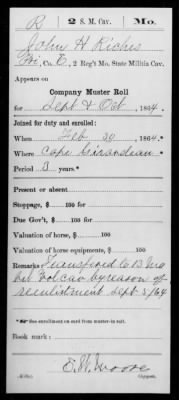 R | 2 S. M. Cav. | Mo.
John H Riches
Pri, Co. E, 2 Reg't Mo. State Militia Cav.
Appears on
Company Muster Roll
for Sept & Oct, 1864.
Joined for duty and enrolled:
When Feb 20, 1864.*
Where Cape Girardeau
Period 3 years.*
Present or absent
Stoppage, $ 100 for
Due Gov't, $ 100 for
Valuation of horse, $ 100
Valuation of horse equipments, $ 100
Remarks: Transferred Co B Mo
Vol Cav by reason of
reenlistment Sept 5/64
*See enrollment on card from muster-in roll.
Book mark:
Copyist.